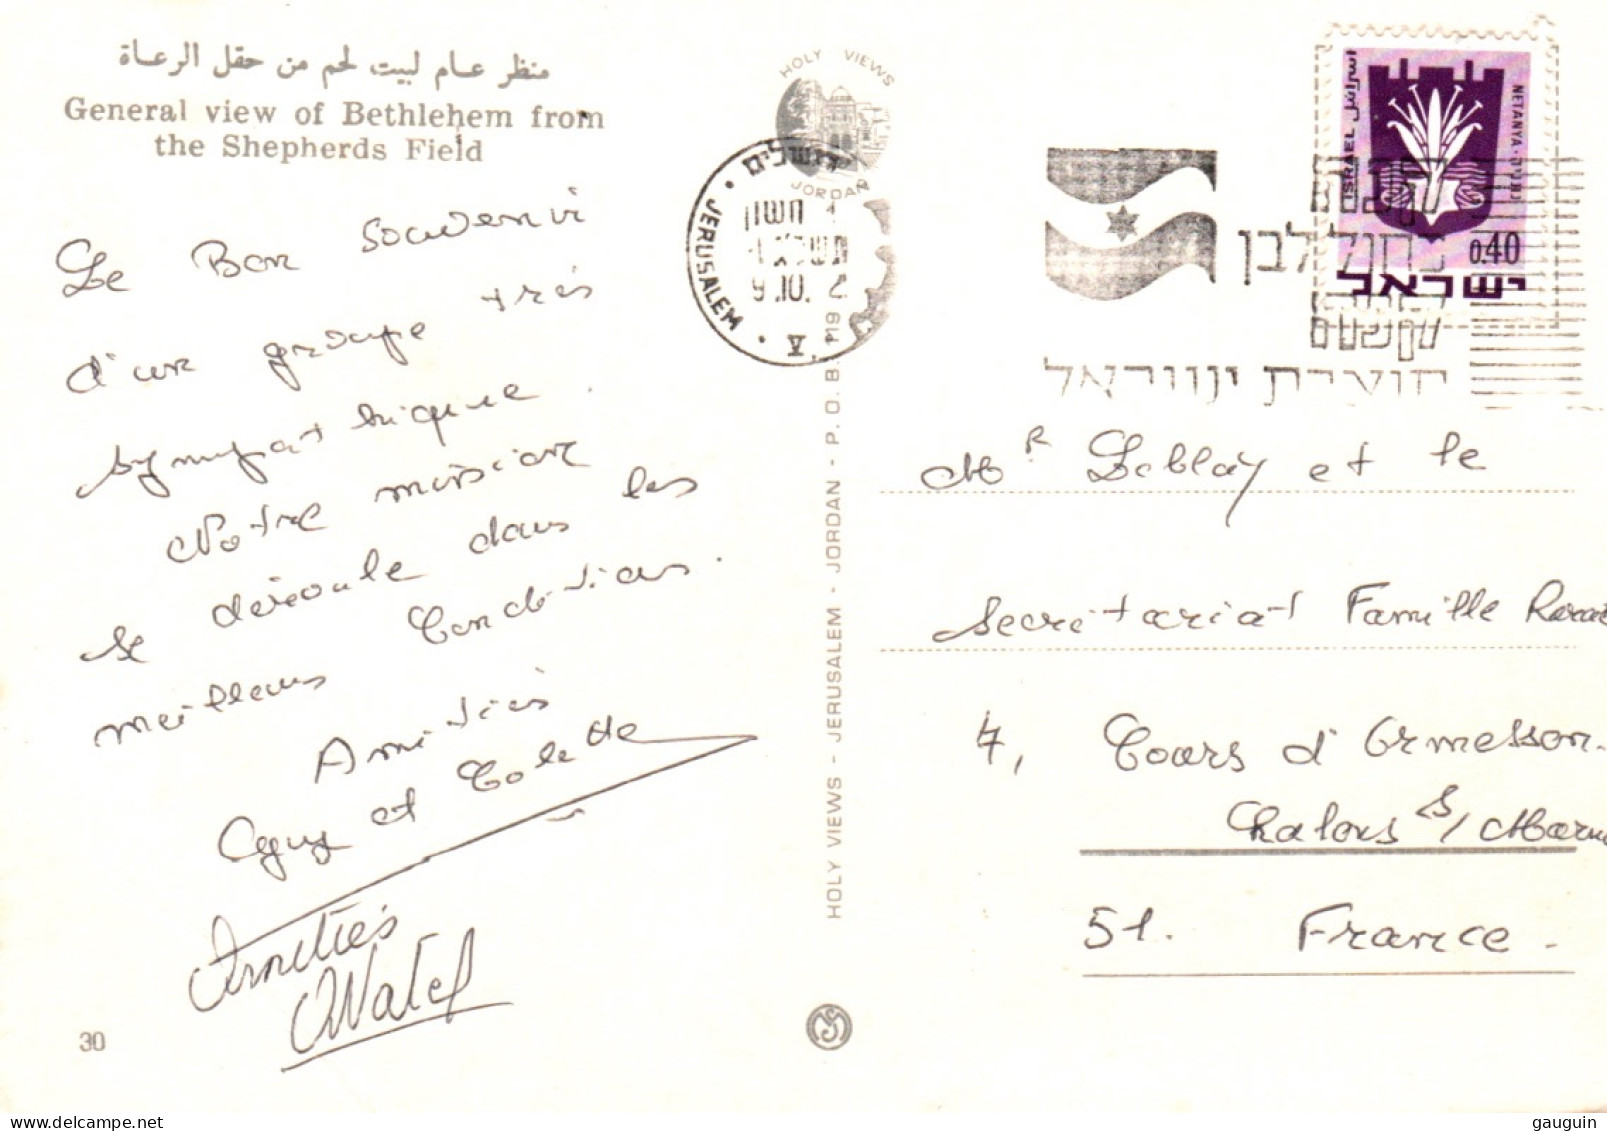 منظر عام لبيت لحم من حقل الرعاة
General view of Bethlehem from
the Shepherds Field
Le Bon souvenir
d'un groupe très
sympathique.
Notre mission
se déroule dans les
meilleurs Conditions.
Amitiés
Guy et Colette
Amitiés
30
HOLY VIEWS
JORDAN
ירושלים
JERUSALEM
9.10.
HOLY VIEWS - JERUSALEM - JORDAN - P. O. B. 19
קנה
כחול לבן
קנה
תוצרת ישראל
اسرائيل
ISRAEL
NETANYA · נתניה
0.40
ישראל
Mr Leblay et le
Secretariat Famille
4, Cours d'Ormesson.
Chalons s/Marne
51. France.
gauguin